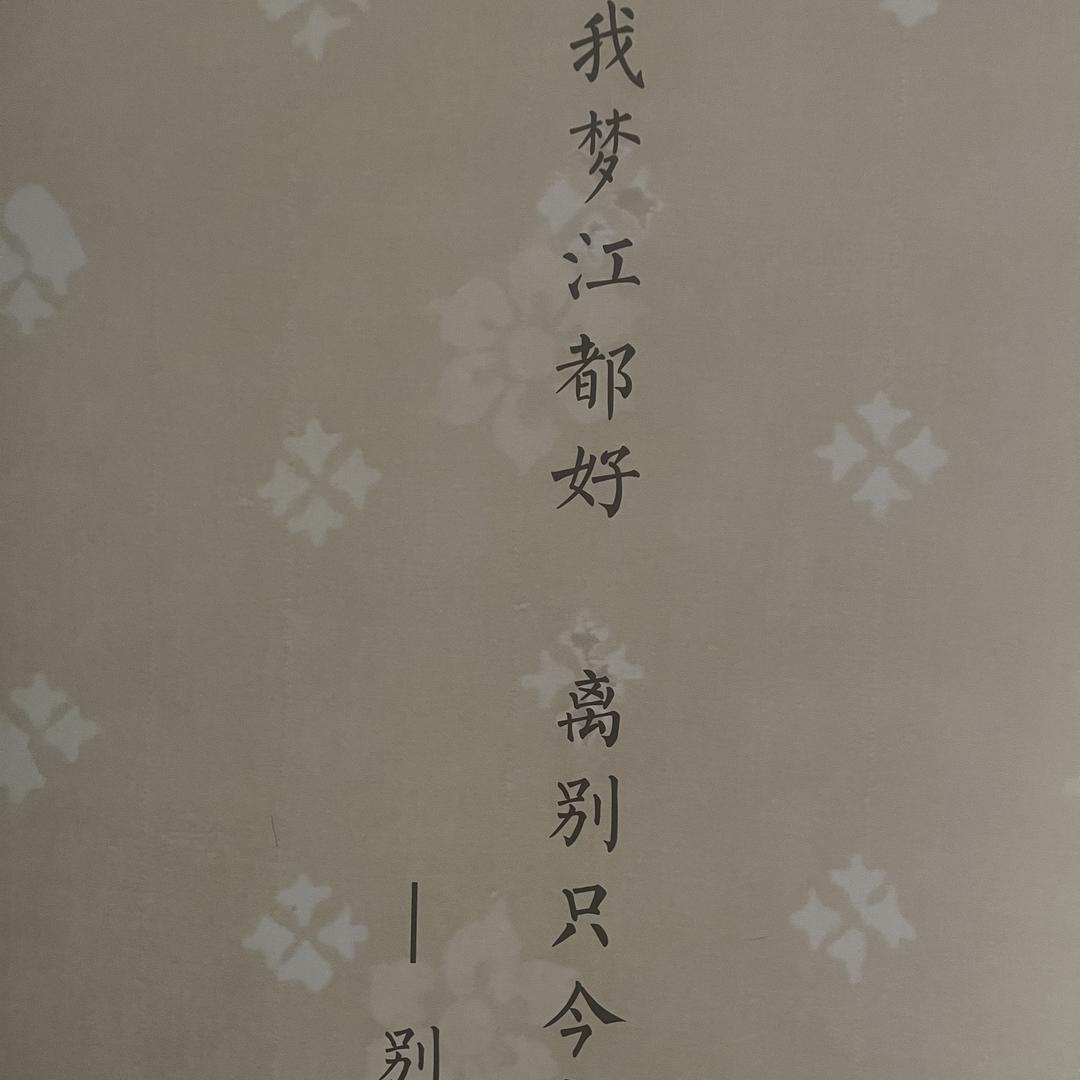 我梦江都好 离别只今
—别